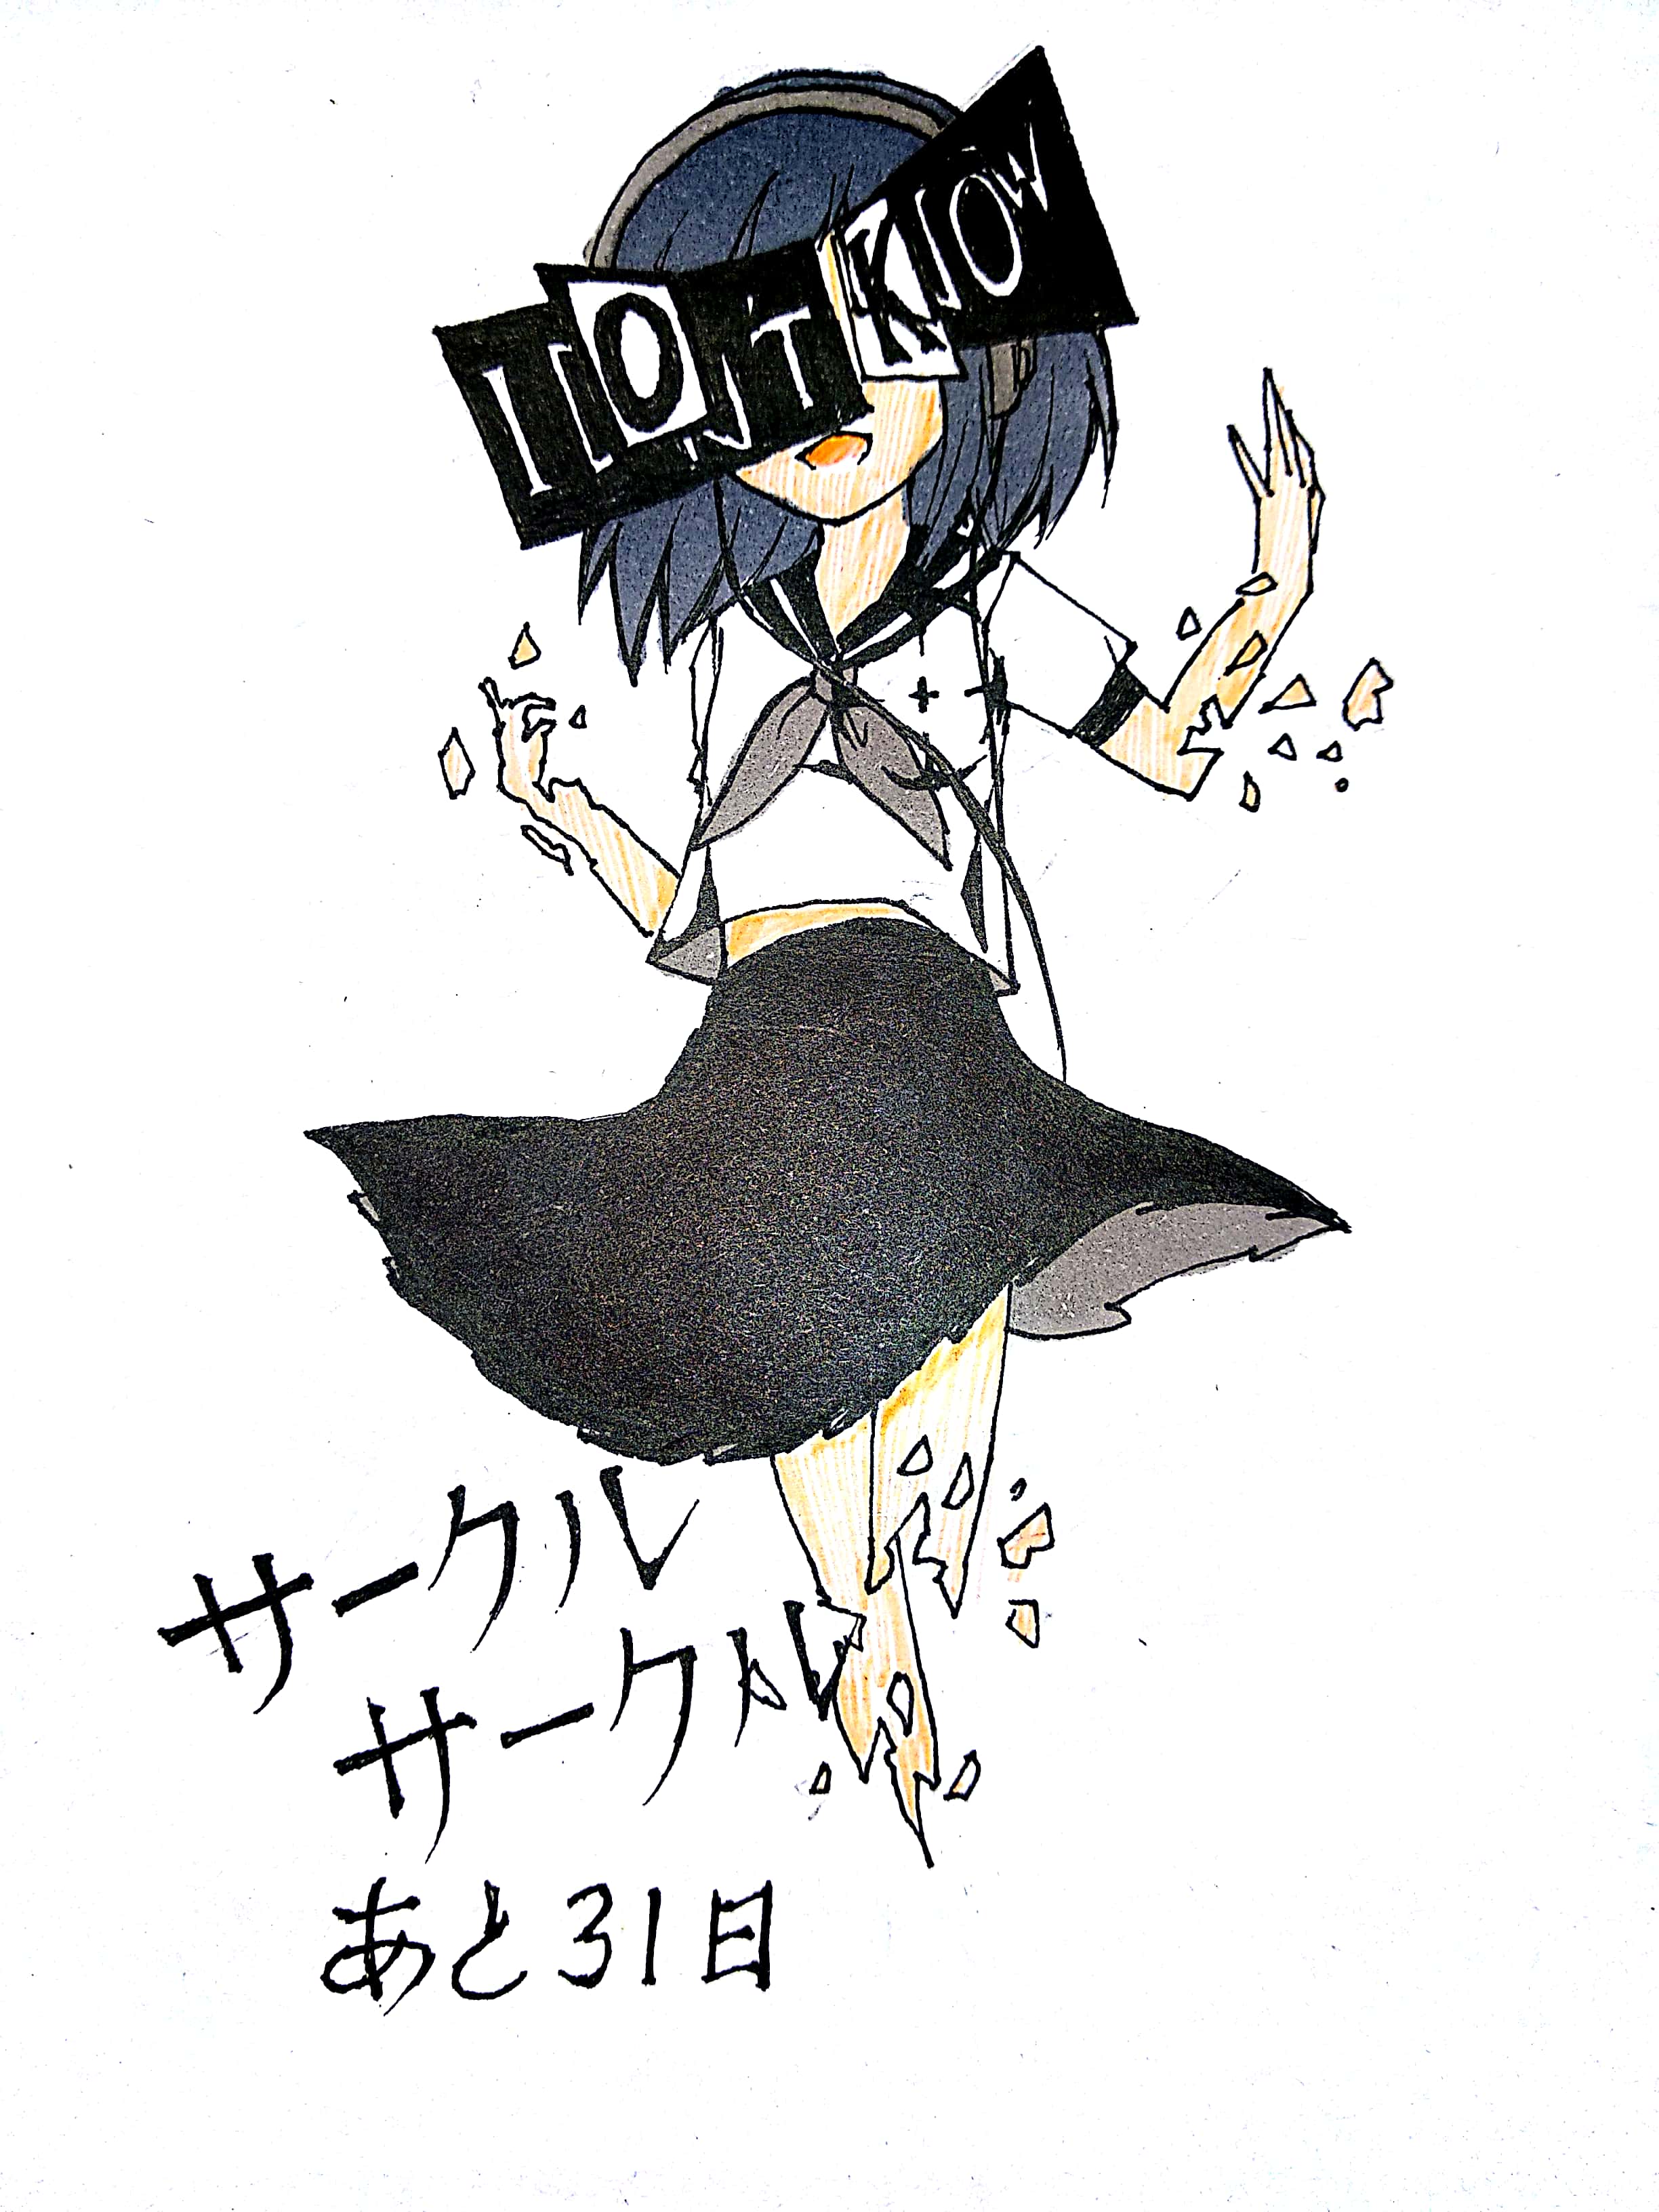 I DONT KNOW
サークル
サークル
あと31日